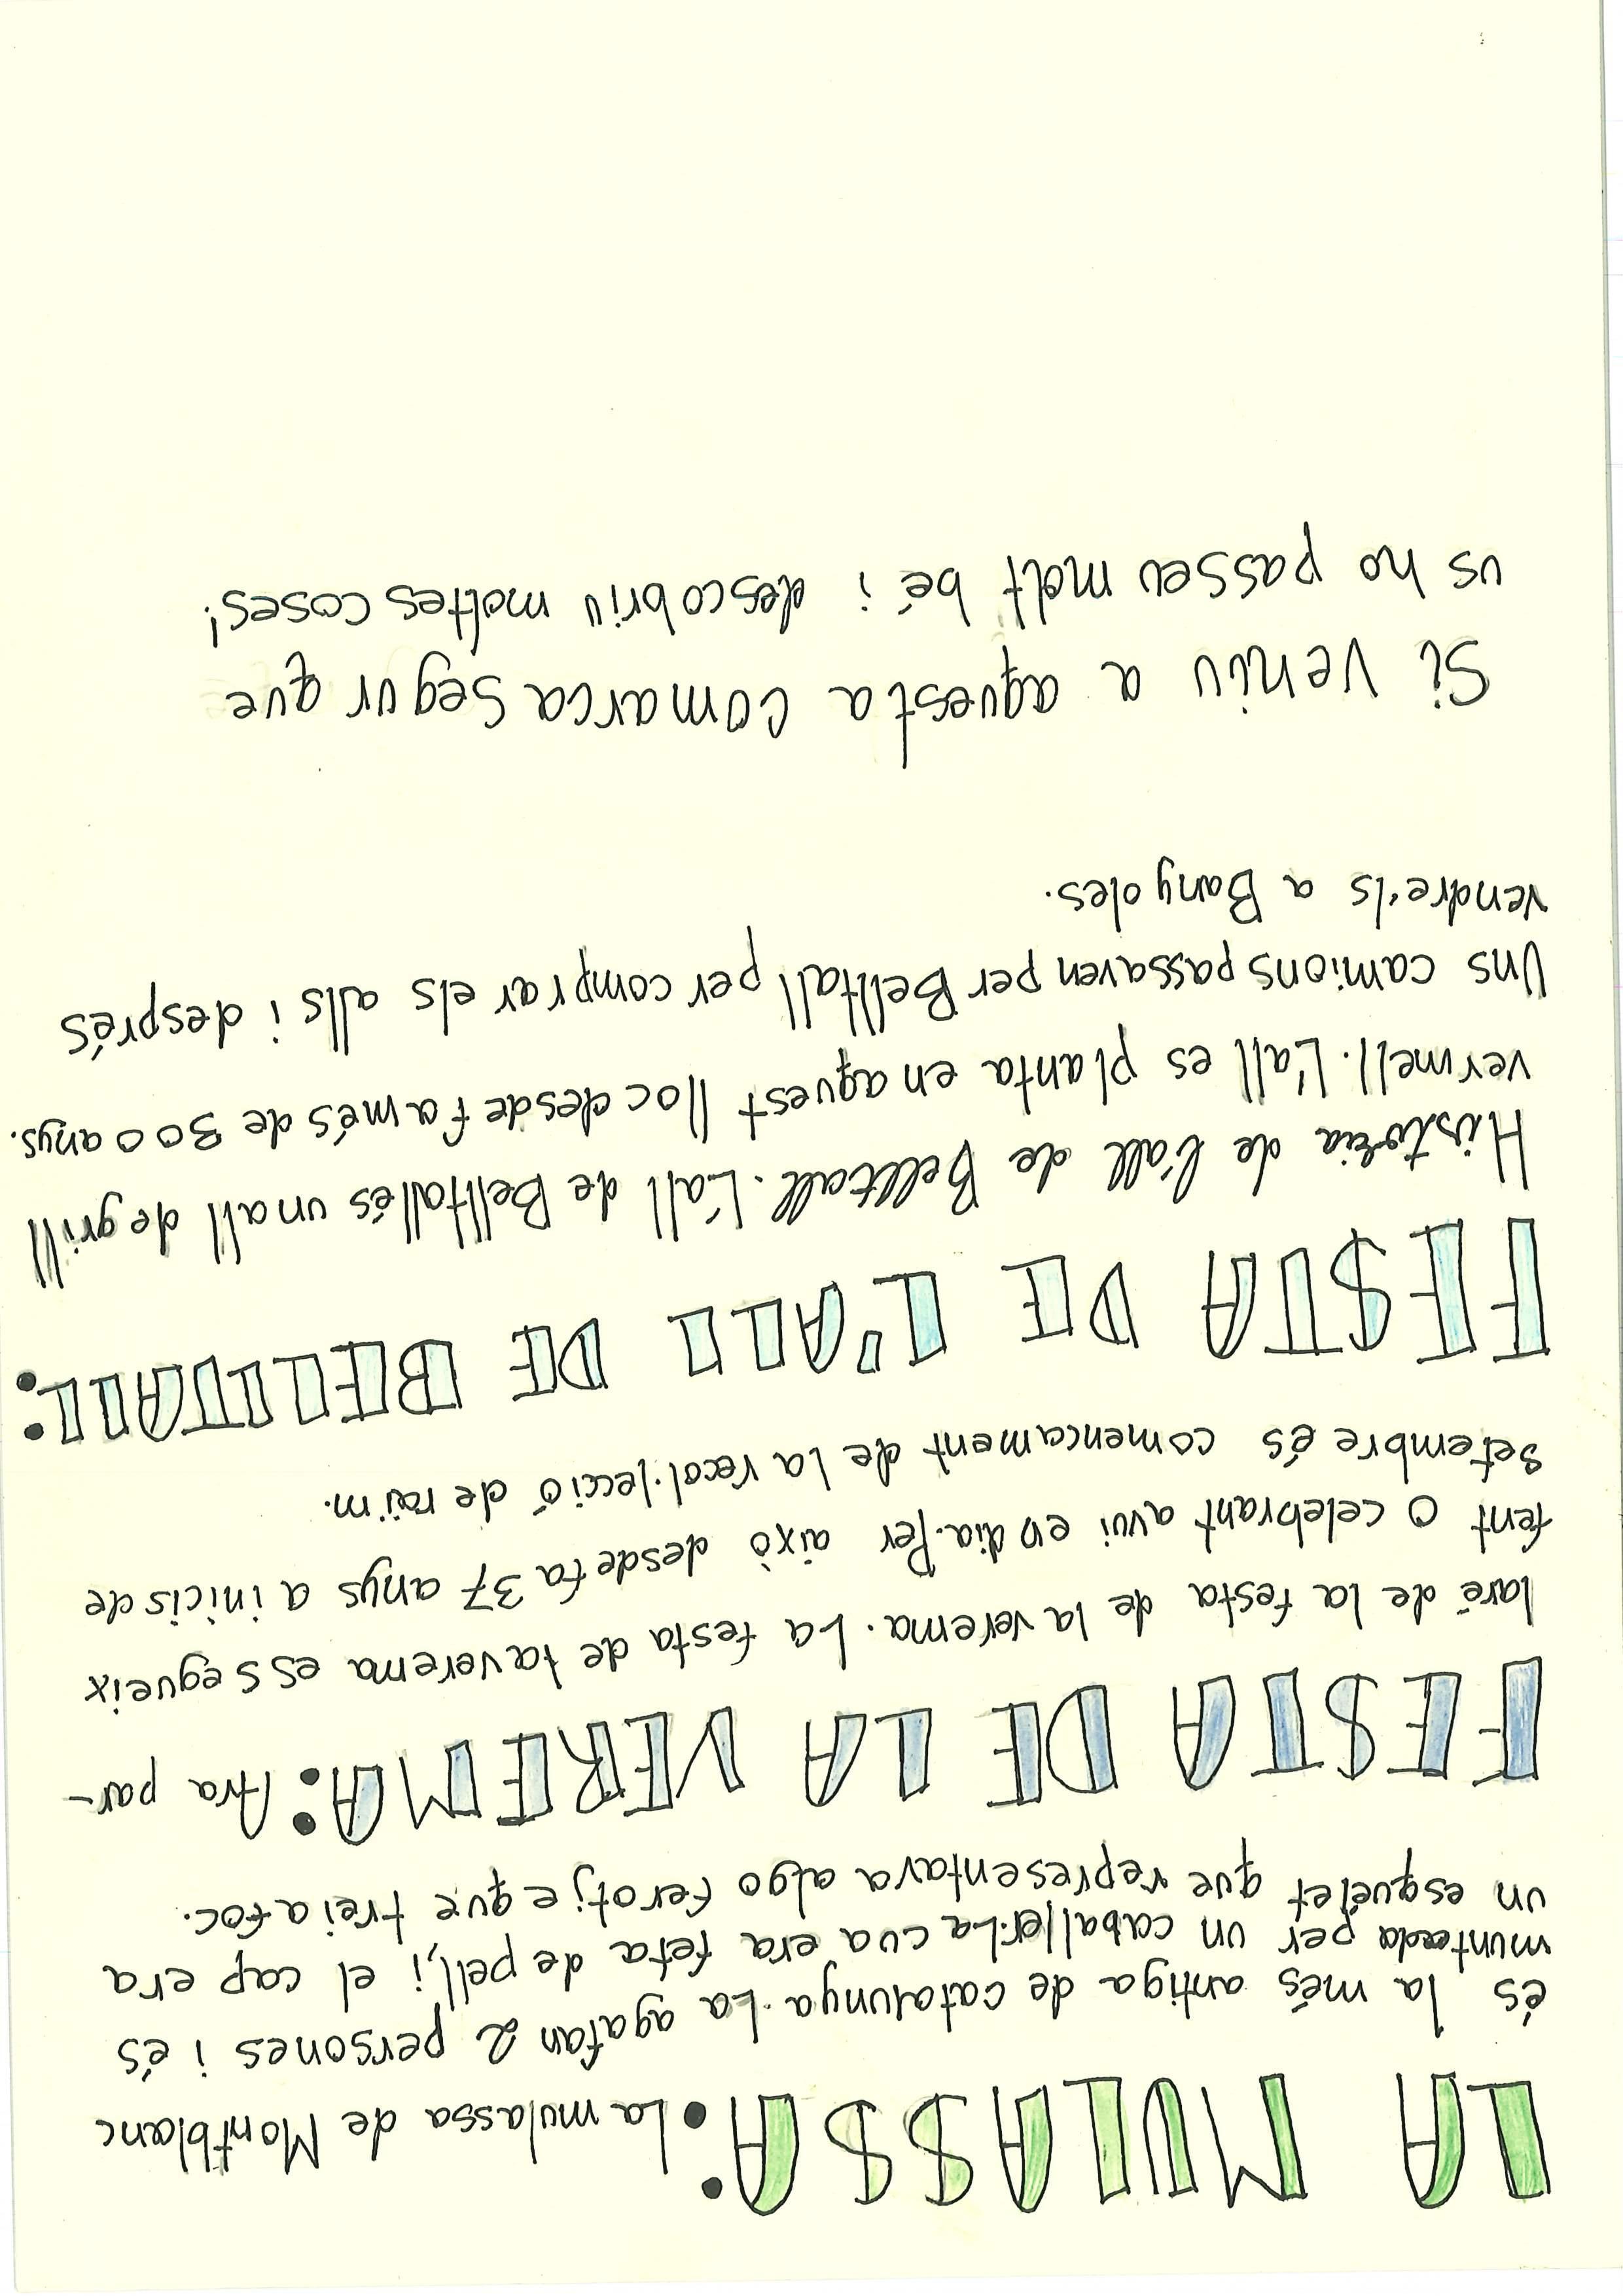 LA MULASSA: La mulassa de Montblanc
és la més antiga de catalunya. La agafan 2 persones i és
muntada per un caballer. La cua era feta de pell, i el cap era
un esquelet que representava algo ferotje que treia foc.
FESTA DE LA VEREMA: Ara par-
laré de la festa de la verema. La festa de la verema es segueix
fent o celebrant avui en dia. Per això desde fa 37 anys a inicis de
setembre és comencament de la recol·lecció de raïm.
FESTA DE L'ALL DE BELLTALL:
Història de l'all de Belltall. L'all de Belltall és un all de grill
vermell. L'all es planta en aquest lloc desde fa més de 300 anys.
Uns camions passaven per Belltall per comprar els alls i després
vendre'ls a Banyoles.
Si veniu a aquesta comarca segur que
us ho passeu molt bé i descobriu moltes coses!